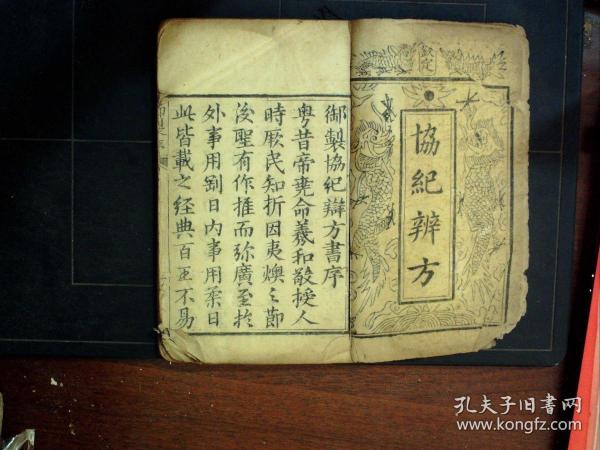 欽定
協紀辨方
御製協紀辯方書序
粤昔帝堯命羲和敬授人
時厥民知折因夷燠之節
後聖有作推而弥廣至於
外事用剛日内事用柔日
此皆載之经典百王不易
孔夫子旧书网
www.kongfz.com